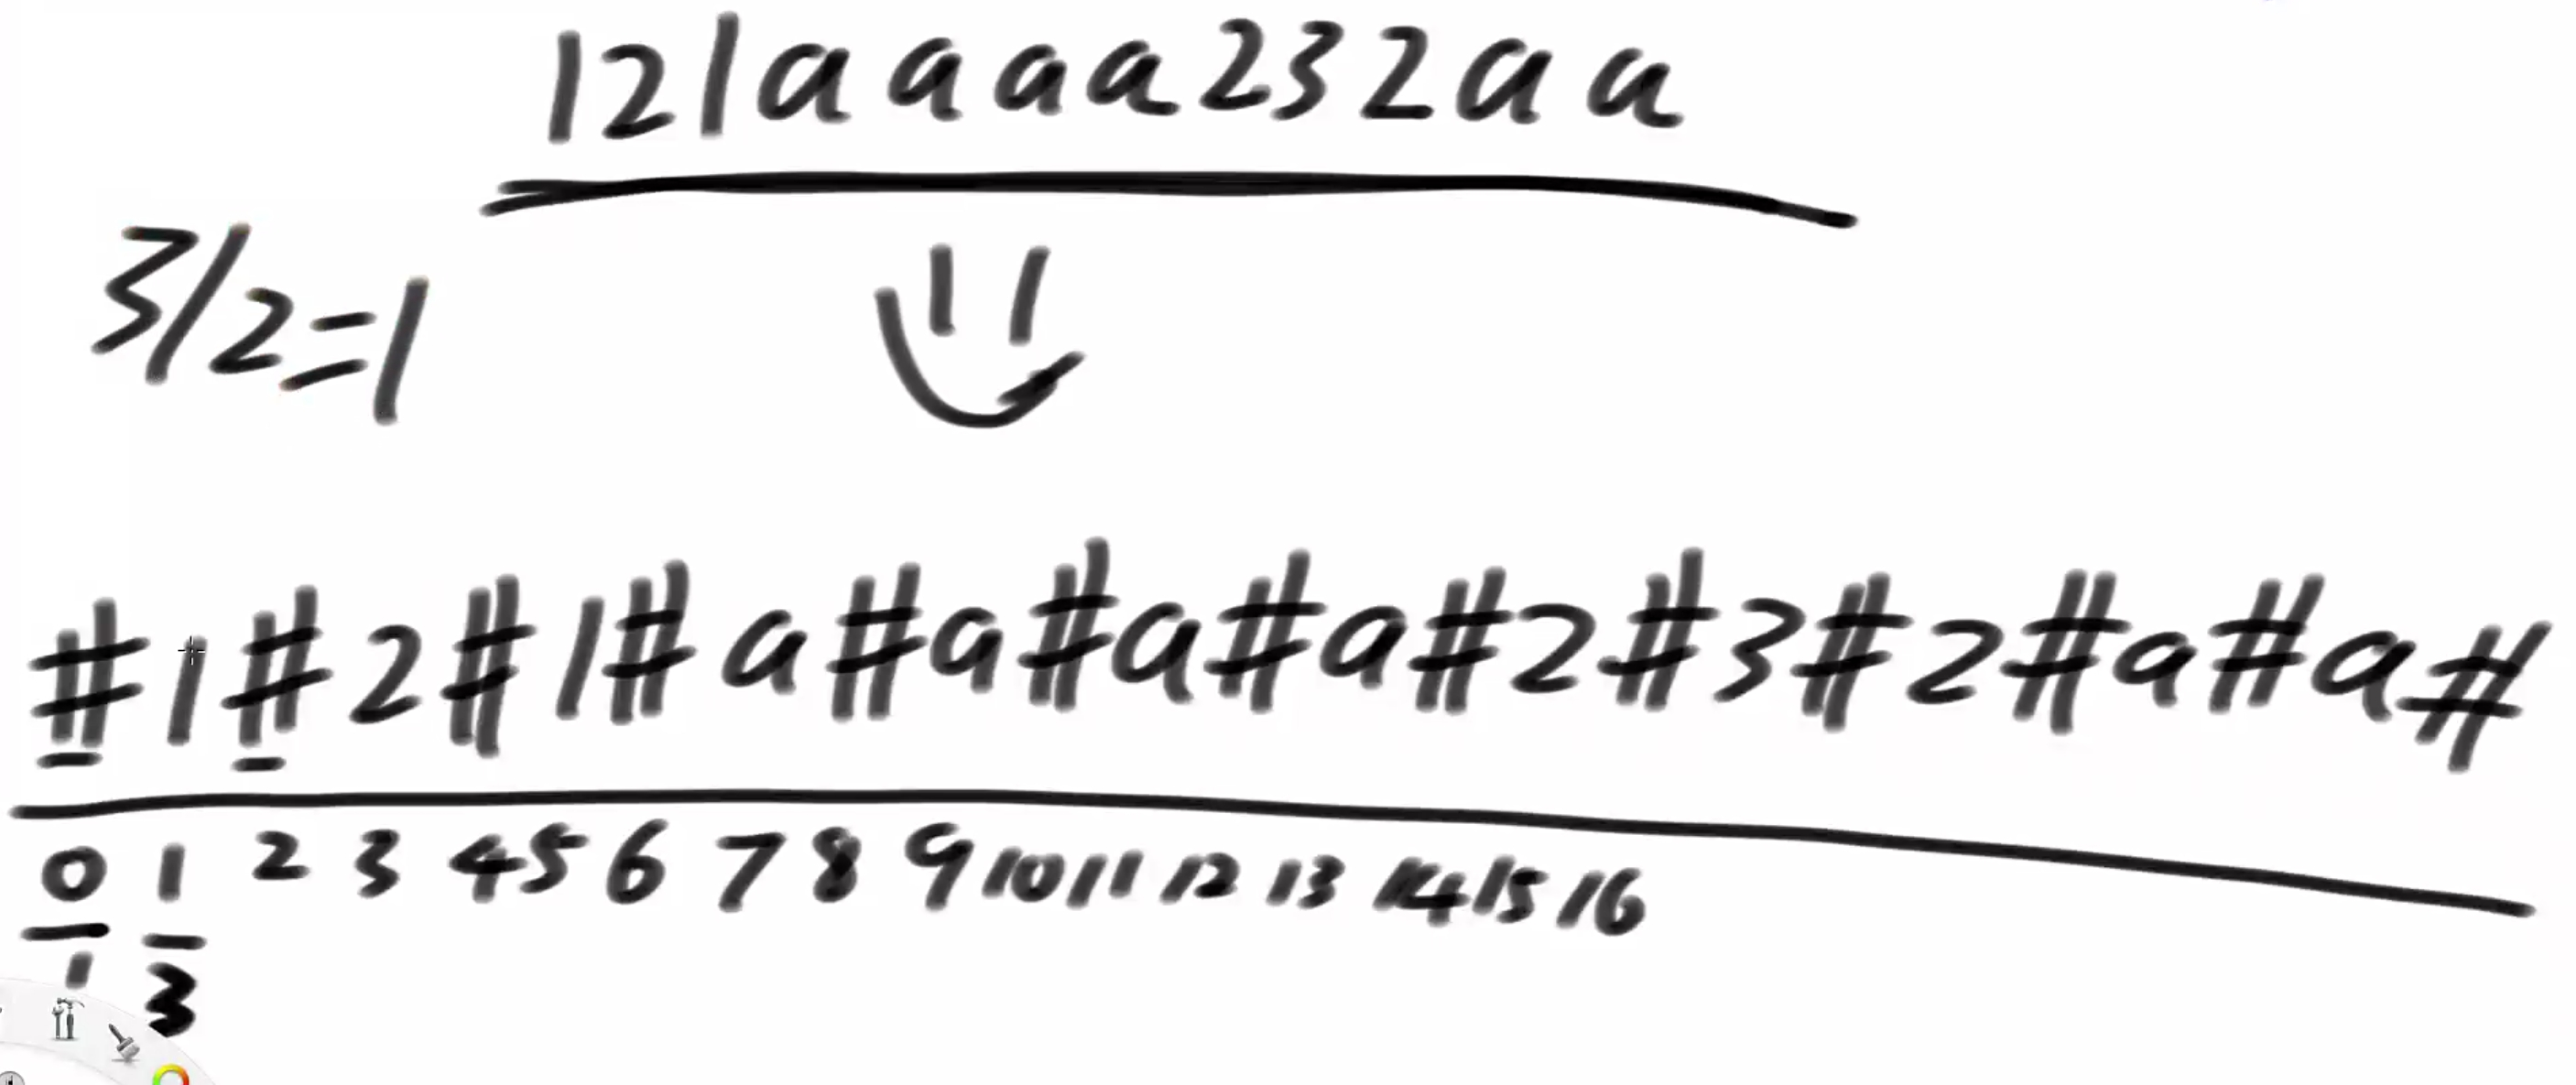 121aaaa232aa
3/2=1
#1#2#1#a#a#a#a#2#3#2#a#a#
0 1 2 3 4 5 6 7 8 9 10 11 12 13 14 15 16
1 3